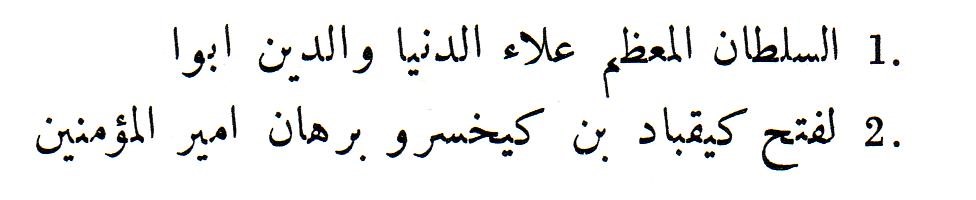 1. السلطان المعظم علاء الدنيا والدين ابوا
2. لفتح كيقباد بن كيخسرو برهان امير المؤمنين